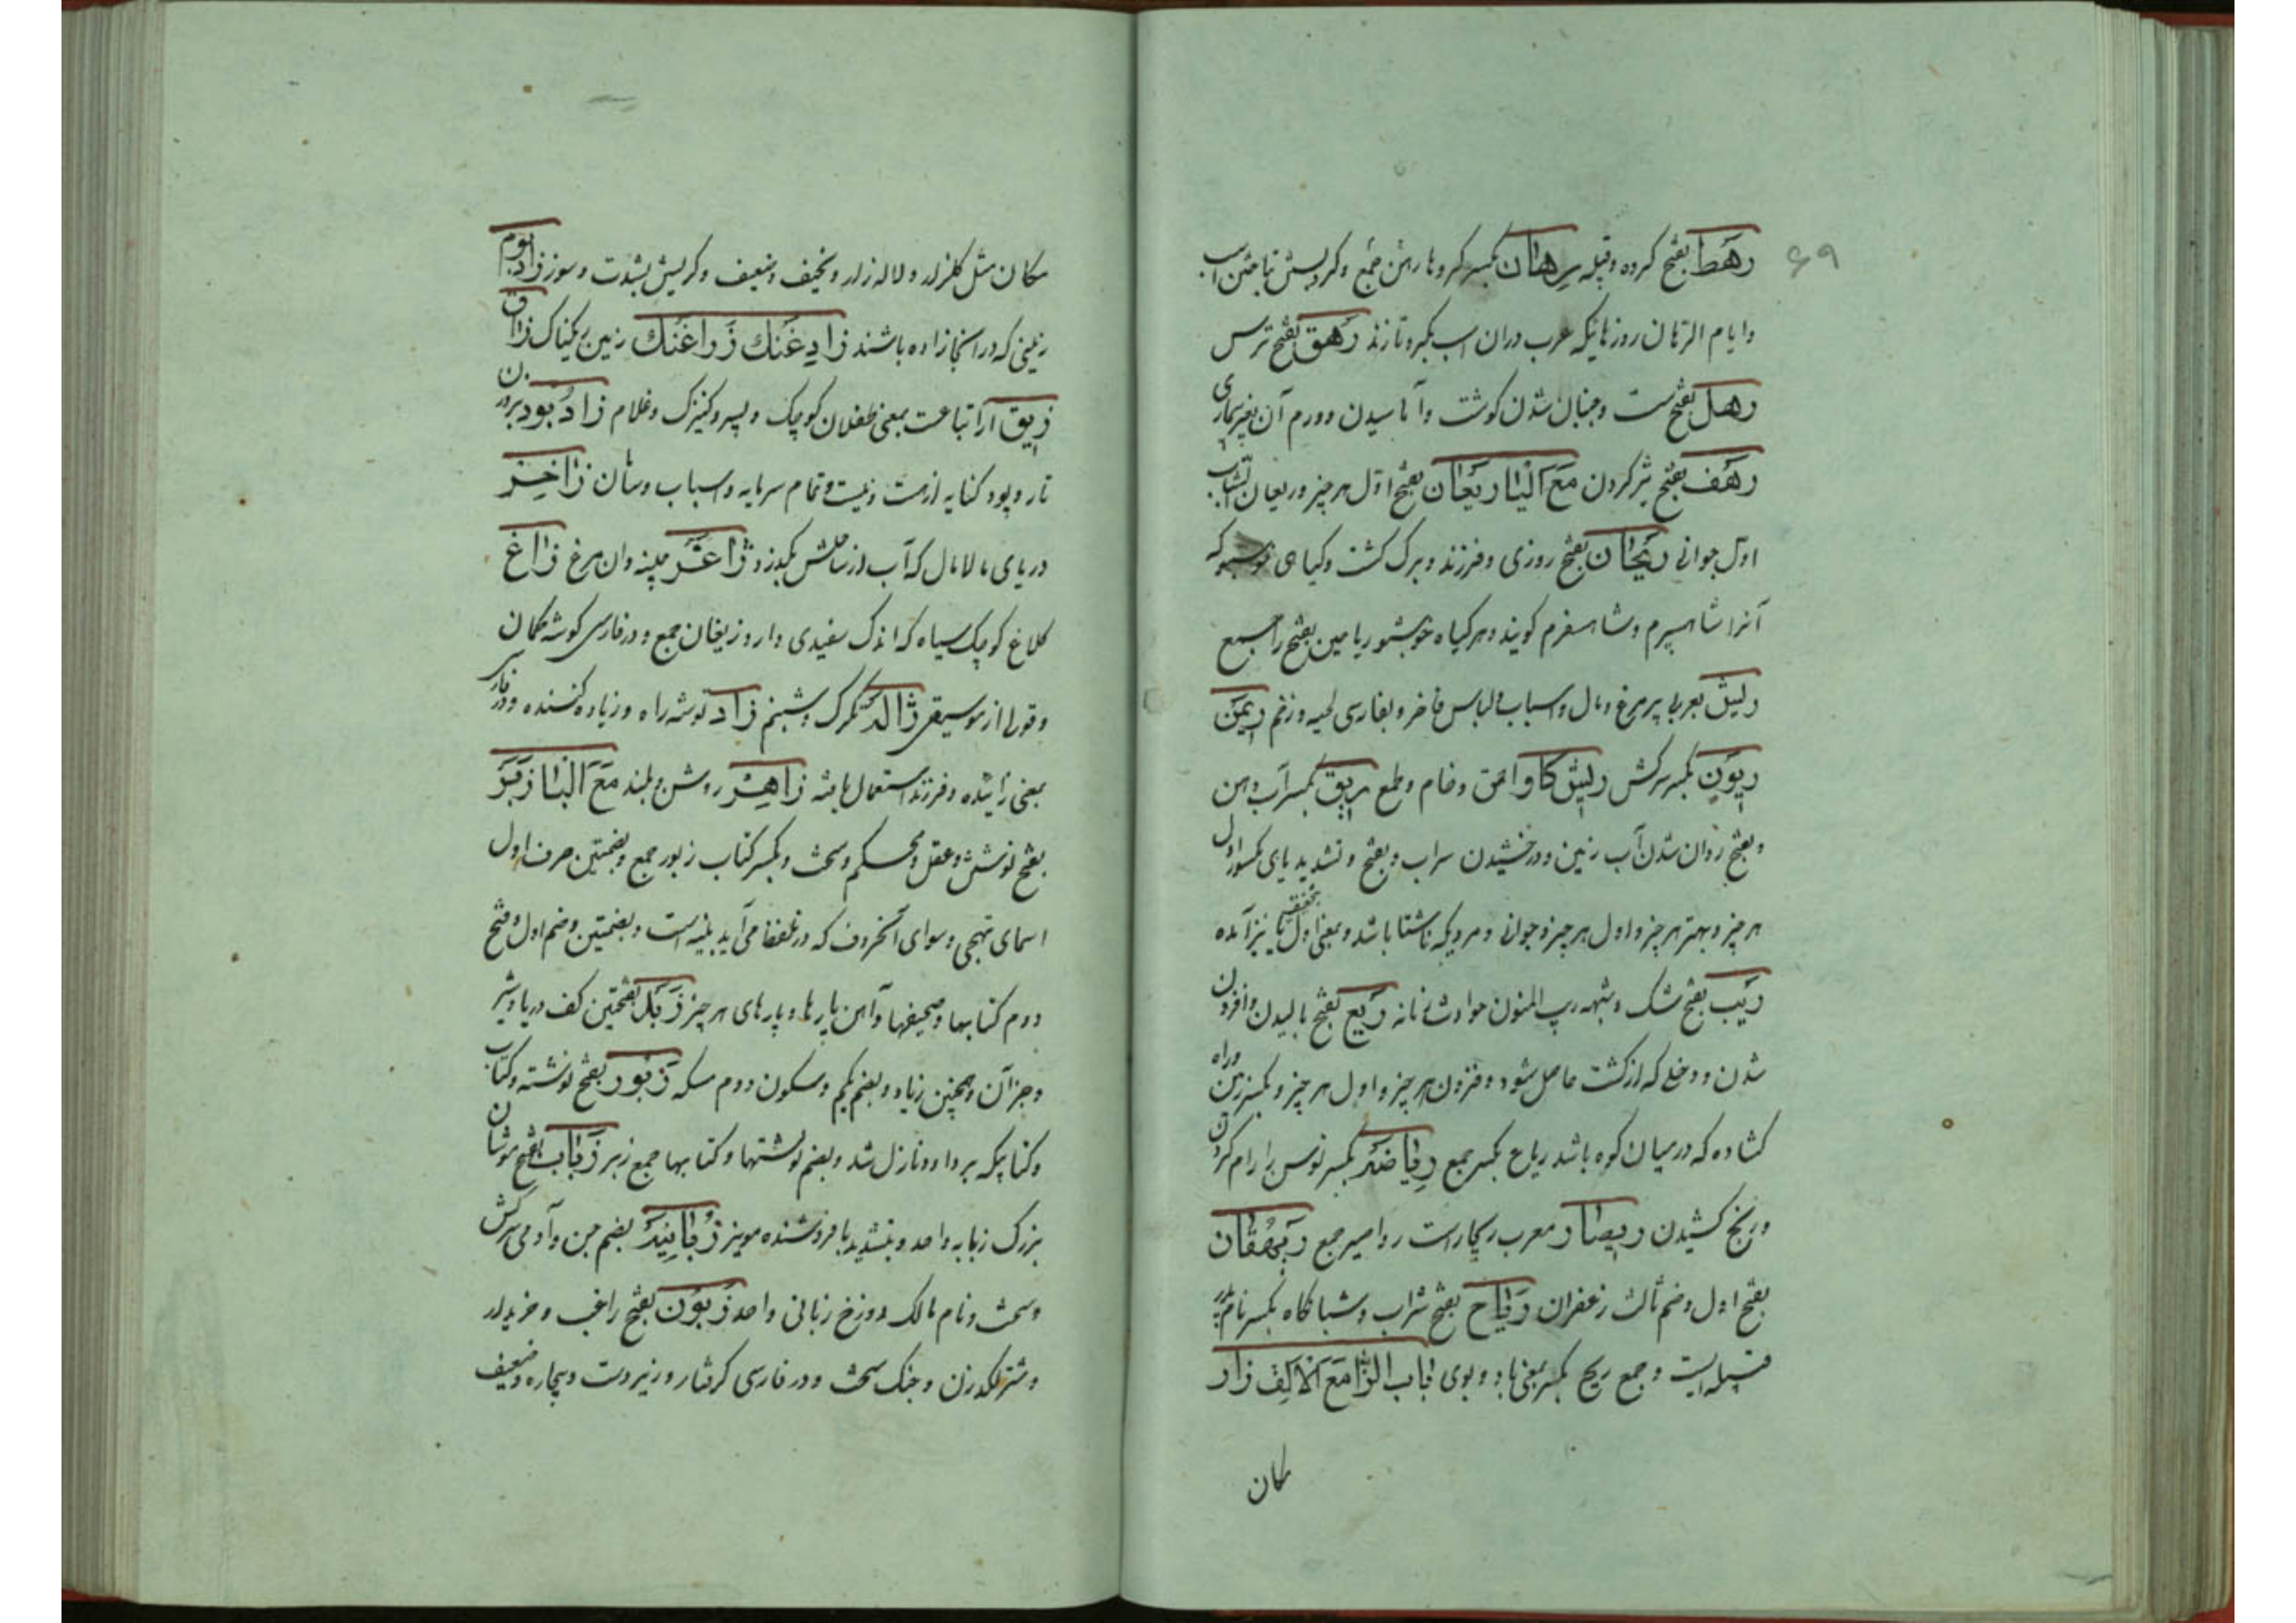 ۶۹
رهط بفتح کروه وقبیله رهان بکسر کروها رهن جمع وکرو بستن بتاختن اسب
وایام الرهان روزهائیکه عرب دران اسب بکرو تازند رهق بفتح ترس
رهل بفتح سست وجنبان شدن کوشت وآماسیدن وورم آن بغیر بیماری
رهف بفتح تیز کردن مع الیا ریعان بفتح اول هر چیز وریعان الشباب
اول جوانی ریحان بفتح روزی وفرزند وبرک کشت وکیاهی خوشبو که
آنرا شاه سپرم وشاه سفرم کویند وهر کیاه خوشبو ریاحین بفتح را جمع
ریش بعربی پر مرغ ومال واسباب ولباس فاخر وبفارسی لحیه وزخم ریمن
ریون بکسر سرکش ریش کاو احمق وخام وطمع ریق بکسر آب دهن
وبفتح روان شدن آب بر زمین ودرخشیدن سراب وبفتح وتشدید یای مکسور اول
هر چیز وبهتر هر چیز واول هر چیز وجوانی ومردیکه ناشتا باشد وبمعنی اول بتخفیف یا نیز آمده
ریب بفتح شک وشبهه ریب المنون حوادث زمانه ریع بفتح بالیدن وافزون
شدن ودخلی که از کشت حاصل شود وفزونی هر چیز واول هر چیز وبکسر زمین وراه
کشاده که در میان کوه باشد ریاع بکسر جمع ریاضة بکسر توسن را رام کردن
ورنج کشیدن ریصار معرب ریچار است رواصیر جمع ریهقان
بفتح اول وضم ثالث زعفران ریاح بفتح شراب وشبانکاه بکسر نام پدر
قبیله ایست وجمع ریح بکسر بمعنی باد وبوی باب الزا مع الالف زار
مکان
مکان مثل کلزار ولاله زار ونحیف وضعیف وکریستن بشدت وسوز زاد بوم
زمینی که در آنجا زاده باشند زادغنک زراغنک زمین ریکناک زاق
زیق آن از اتباعست بمعنی طفلان کوچک وپسر وکنیزک وغلام زاد بود بر وزن
تار وپود کنایه از هست ونیست وتمام سرمایه واسباب وسامان زاخر
دریای مالامال که آب از ساحلش بکذرد زاغر چینه دان مرغ زاغ
کلاغ کوچک سیاه که اندک سفیدی دارد زیغان جمع ودر فارسی کوشه کمان
وقولی از موسیقی ژاله تکرک وشبنم زاد توشه راه وزیاده کننده ودر فارسی
بمعنی زائیده وفرزند استعمال یافته زاهر روشن وبلند مع البا زبر
بفتح نوشتن وعقل ومحکم وسخت وبکسر کتاب زبور جمع وبضمتین حرف اول
اسمای تهجی وسوای آنحروف که در تلفظ می آید بینه است وبضمتین وضم اول وفتح
دوم کتابها وصحیفها وآهن پارها وپارهای هر چیز زبد بفتحتین کف دریا وشیر
وجز آن وهمچنین زیاد وبضم یکم وسکون دوم مسکه زبور بفتح نوشته وکتاب
وکتابیکه بر داود نازل شد وبضم نوشتها وکتابها جمع زبر زباب بفتح موشان
بزرک زبابه واحد وبتشدید با فروشنده مویز زبانیة بضم جن وآدمی سرکش
وسخت ونام مالک دوزخ زبانی واحد زبون بفتح راغب وخریدار
وشتر لکد زن وجنک سخت ودر فارسی کرفتار وزیر دست وبیچاره وضعیف